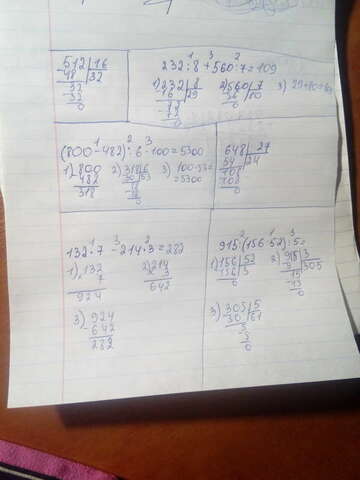 512 | 16
48 | 32
32
32
0
1 3 2
232 : 8 + 560 : 7 = 109
1) 232 | 8 2) 560 | 7 3) 29+80=109
16 | 29 56 | 80
72 0
72
0
1 2 3
(800 - 482) : 6 · 100 = 5300
1) 800 2) 318 | 6 3) 100 · 53 =
482 30 | 53 = 5300
318 18
18
0
648 | 27
54 | 24
108
108
0
1 3 2
132 · 7 - 214 · 3 = 282
1) 132 2) 214
7 3
924 642
3) 924
- 642
282
2 1 3
915 : (156 : 52) : 5 =
1) 156 | 52 2) 915 | 3
156 | 3 9 | 305
0 15
15
0
3) 305 | 5
30 | 61
5
5
0